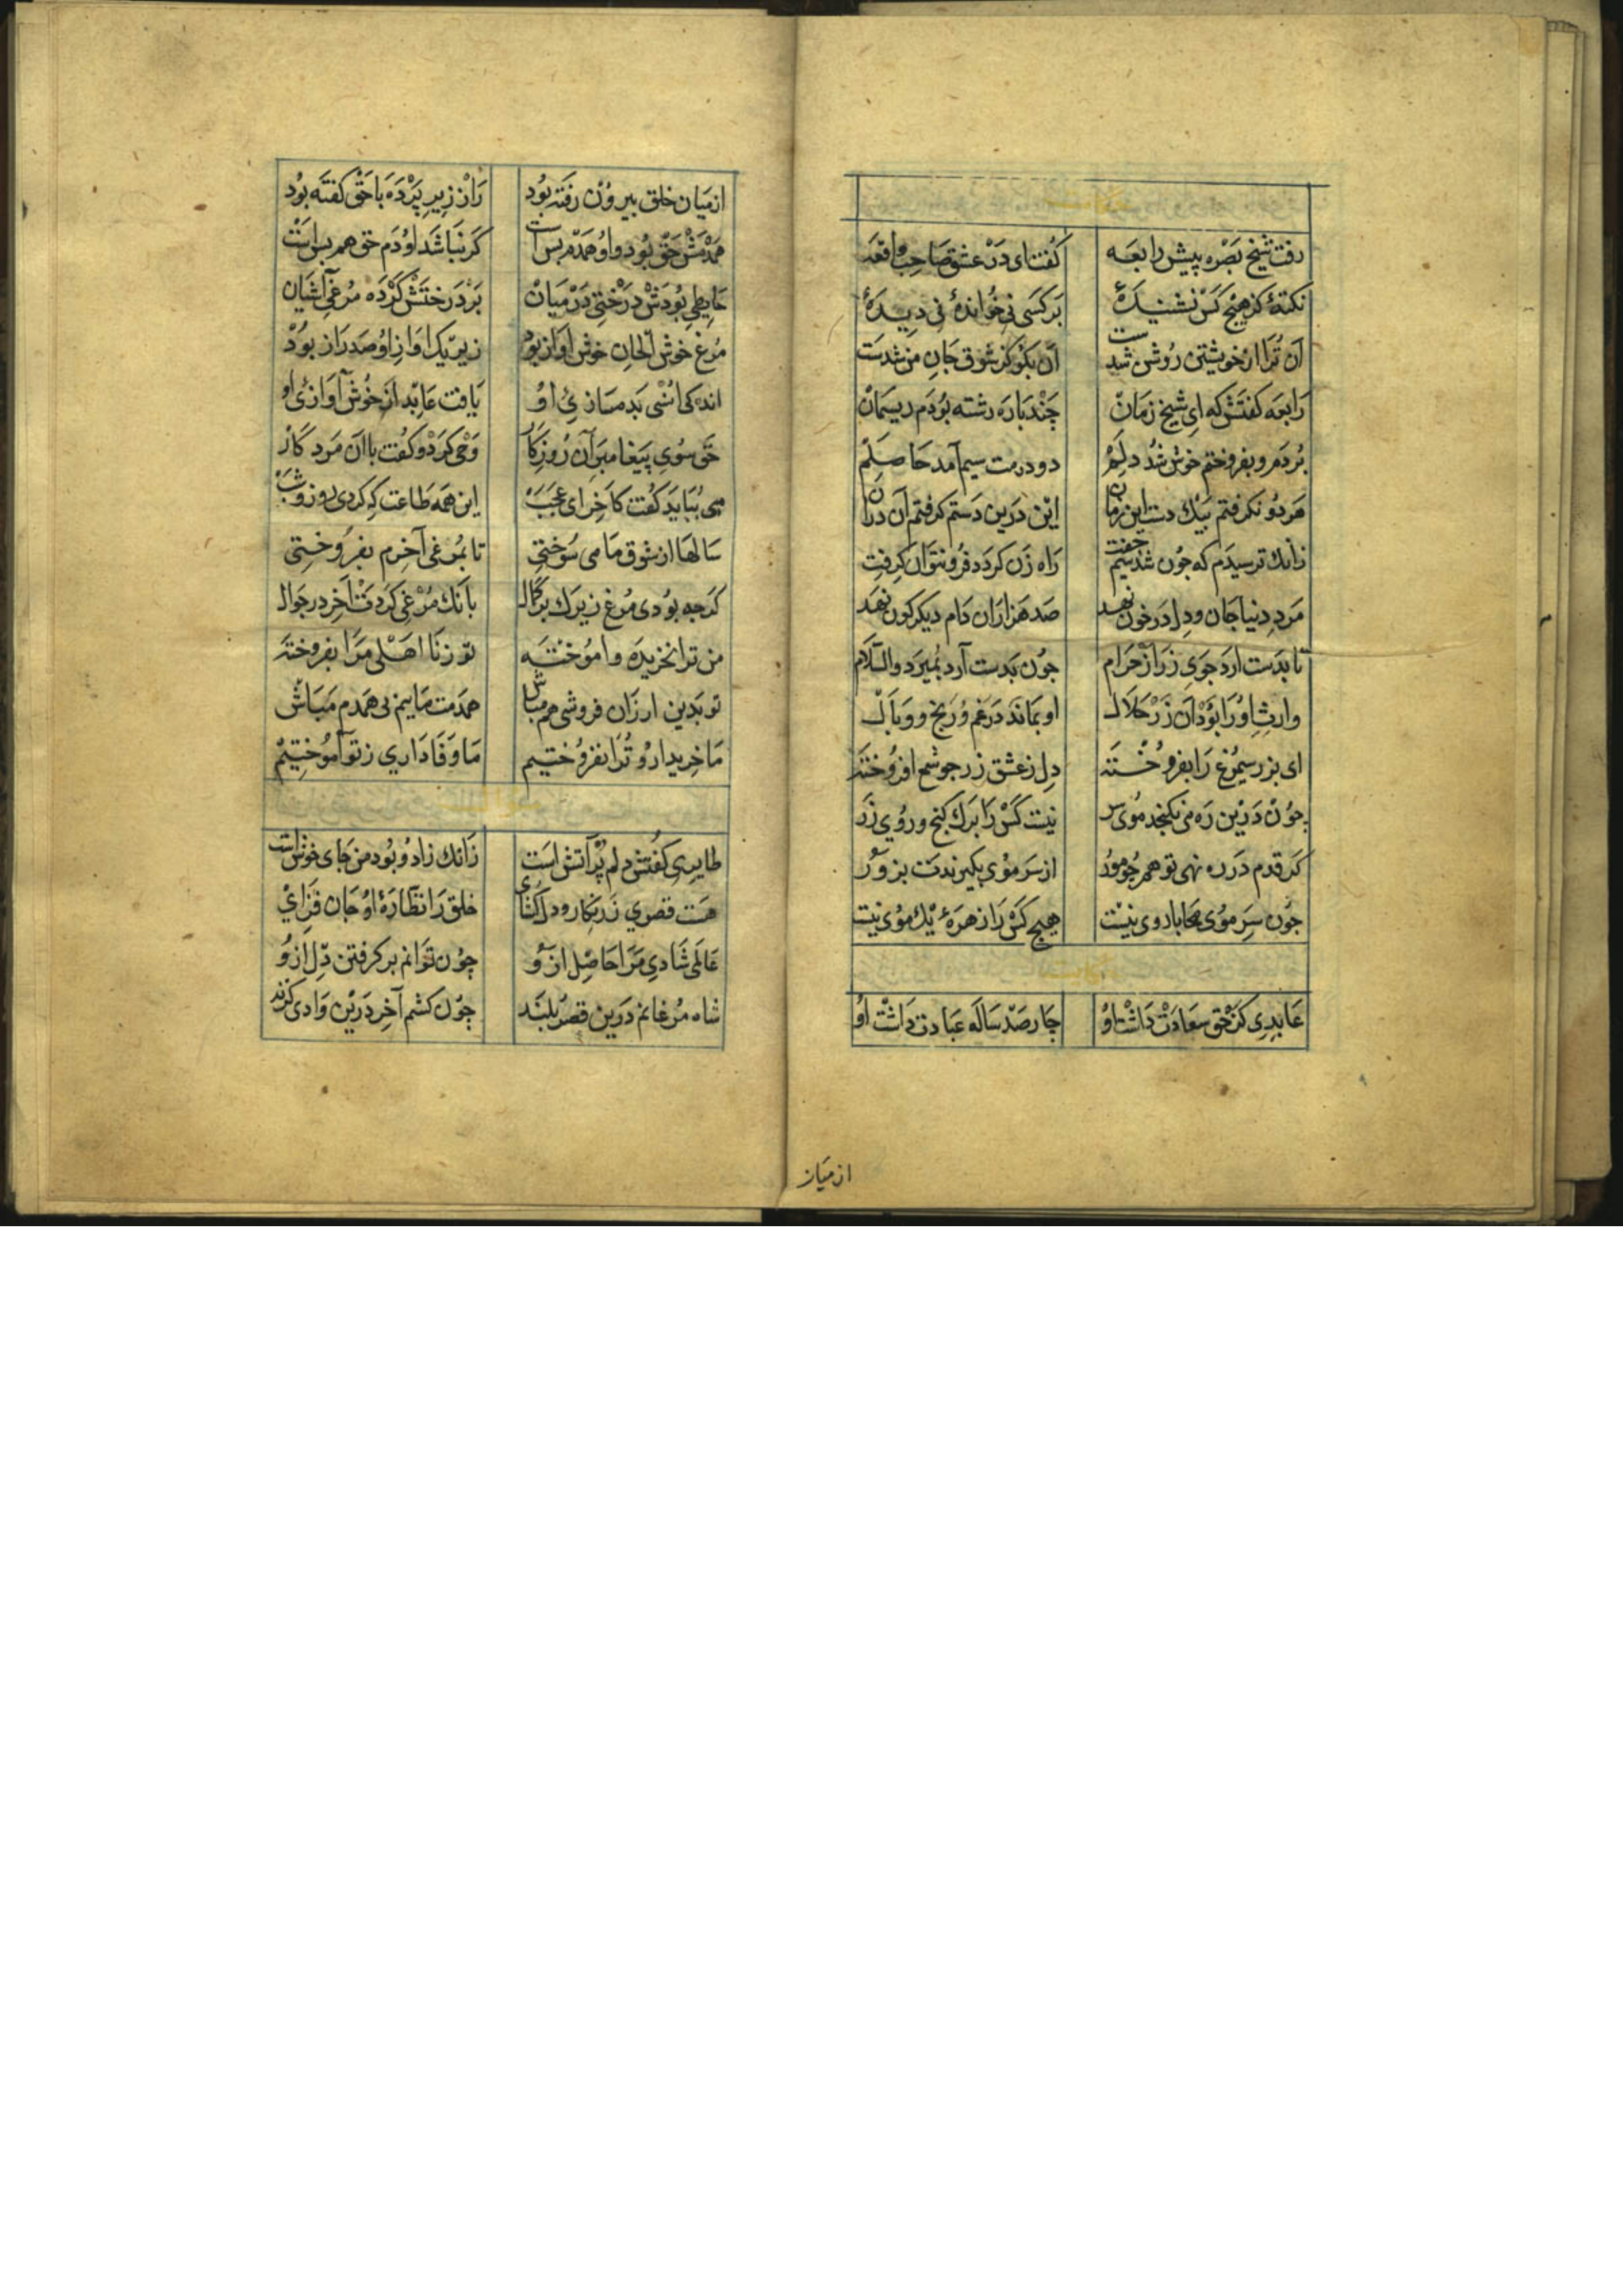 رفت شیخ بصره پیش رابعه کفت ای در عشق صاحب واقعه
نکتهٔ کز هیچ کس نشنیدهٔ بر کسی نی خواندهٔ نی دیدهٔ
آن ترا از خویشتن روشن شدست آن بکو کز شوق جان من شدست
رابعه کفتش که ای شیخ زمان چند باره رشته بودم ریسمان
بردم و بفروختم خوش شد دلم دو درمت سیم آمد حاصلم
هر دو نکرفتم بیک دست این زمان این درین دستم کرفتم آن دران
زانك ترسیدم که جون شد سیم جفت راه زن کردد فرو نتوان کرفت
مرد دنیا جان و دل در خون نهد صد هزاران دام دیکر کون نهد
تا بدست ارد جوی زر از حرام جون بدست آرد بمیرد والسلام
وارث او را بود آن زر حلال او بماند در غم و رنج و وبال
ای بزر سیمرغ را بفروخته دل ز عشق زر جو شمع افروخته
جون درین ره می نکنجد موی نیست کس را برك کنج و روی زر
کر قدم در ره نهی تو همجو مور از سر موی بکیرندت بزور
جون سر موی محابا روی نیست هیچ کس را زهرهٔ یك موی نیست
عابدی کز حق سعادت داشت او چار صد ساله عبادت داشت او
از میان
از میان خلق بیرون رفته بود راز زیر پرده با حق کفته بود
همدمش حق بود و او همدم بس است کر نباشد او دم حق هم بس است
حایطی بودش درختی در میان بر درختش کرده مرغی آشیان
مرغ خوش الحان خوش آواز بود زیر یک اواز او صد راز بود
یافت عابد از خوش آوازی او اندکی انسی بدمسازی او
حق سوی پیغامبر آن روزکار وحی کرد و کفت با آن مرد کار
می بباید کفت کاخر ای عجب این همه طاعت که کردی روز و شب
سالها از شوق ما می سوختی تا بمرغی آخرم بفروختی
کرجه بودی مرغ زیرك بر کمال بانك مرغی کردت آخر در جوال
من ترا بخریده و اموخته تو ز نا اهلی مرا بفروخته
تو بدین ارزان فروشی هم مباش همدمت ماییم بی همدم مباش
ما خریدار و ترا نفروختیم ما وفاداری ز تو آموختیم
طایری کفتش دلم پر آتش است زانك زاد و بود من جای خوش است
هست قصری زرنکار و دل کشای خلق را نظارهٔ او جان فزای
عالمی شادی مرا حاصل ازو چون توانم بر کرفتن دل ازو
شاه مرغانم درین قصر بلند چون کشم آخر درین وادی کزند